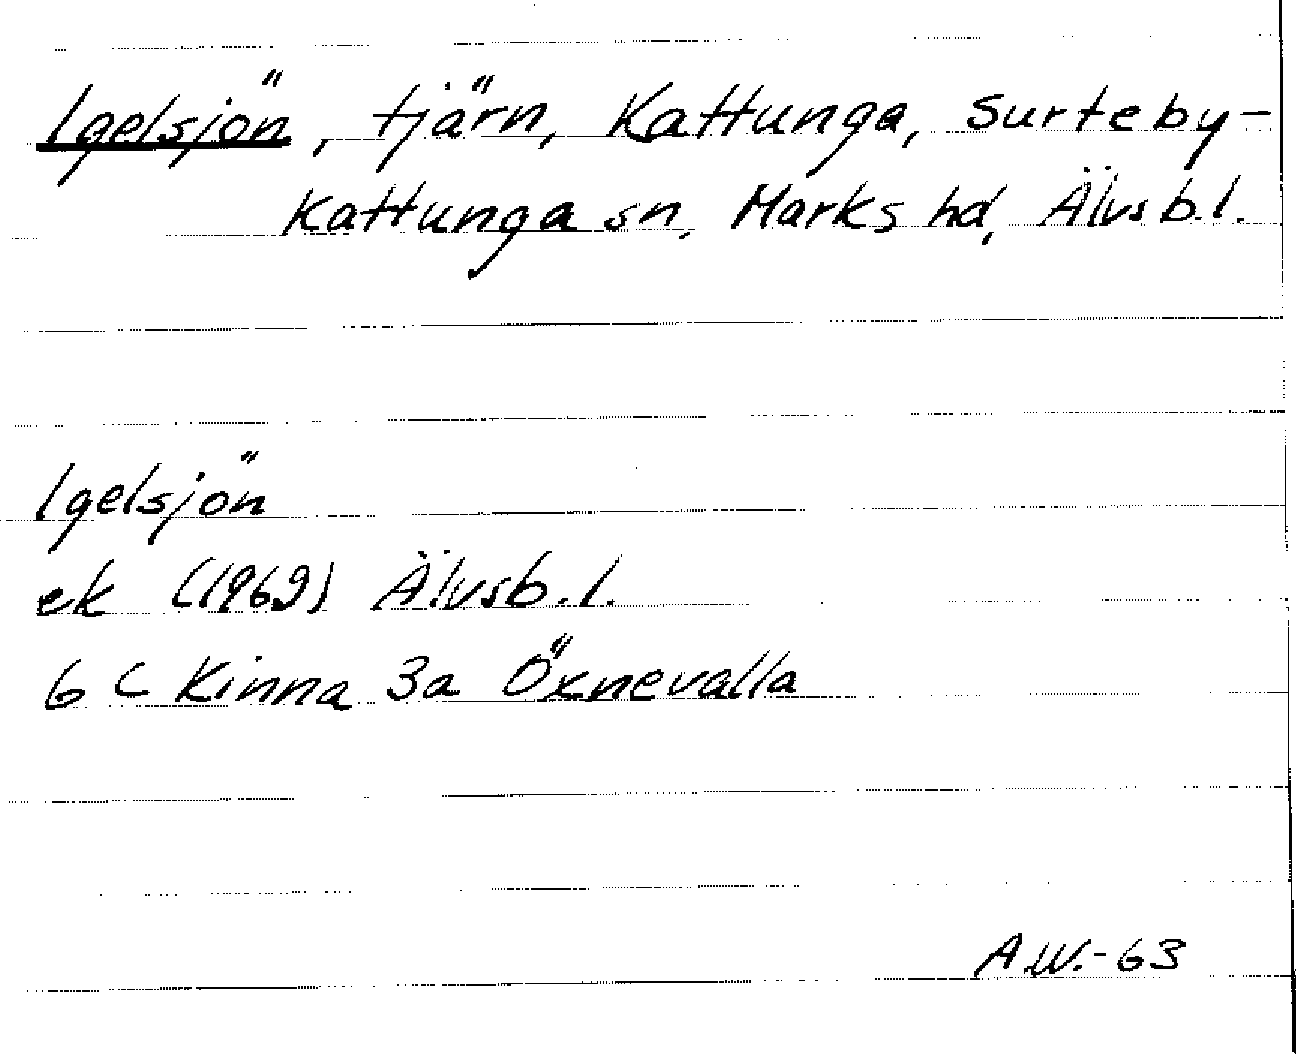 Igelsjön, tjärn, Kattunga, Surteby-
Kattunga sn, Marks hd, Älvsb.l.
Igelsjön
ek (1969) Älvsb.l.
6 C Kinna 3a Öxnevalla
A.W.-63